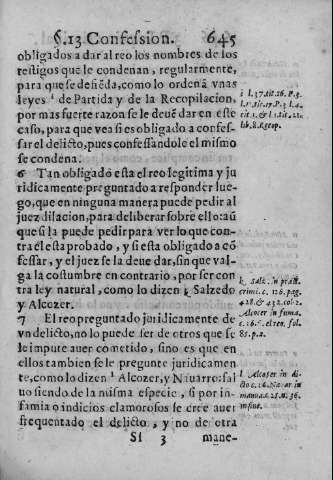 §.13 Confession. 645
obligados a dar al reo los nombres de los
testigos que le condenan, regularmente,
para que se defiẽda, como lo ordenã vnas
leyes i de Partida y de la Recopilacion,
por mas fuerte razon se le deuẽ dar en este
caso, para que vea si es obligado a confes-
sar el delicto, pues confessandole el mismo
se condena.
6 Tan obligado esta el reo legitima y ju
ridicamente preguntado a responder lue-
go, que en ninguna manera puede pedir al
juez dilacion, para deliberar sobre ello: aũ
que si la puede pedir para ver lo que con-
tra él esta probado, y si esta obligado a cõ
fessar, y el juez se la deue dar, sin que val-
ga la costumbre en contrario, por ser con
tra ley natural, como lo dizen k Salzedo
y Alcozer.
7 El reo preguntado juridicamente de
vn delicto, no lo puede ser de otros que se
le impute auer cometido, sino es que en
ellos tambien se le pregunte juridicamen
te, como lo dizen l Alcozer, y Nauarro: sal
uo siendo de la misma especie, si por in-
famia o indicios clamorosos se cree auer
frequentado el delicto, y no de otra
Sf 3 mane-
i l. 37. tit. 16. P. 3.
k Salz. in pract.
crimi. c. 126. pag.
428. & 432. col. 2.
Alcozer in suma.
l Alcozer in di